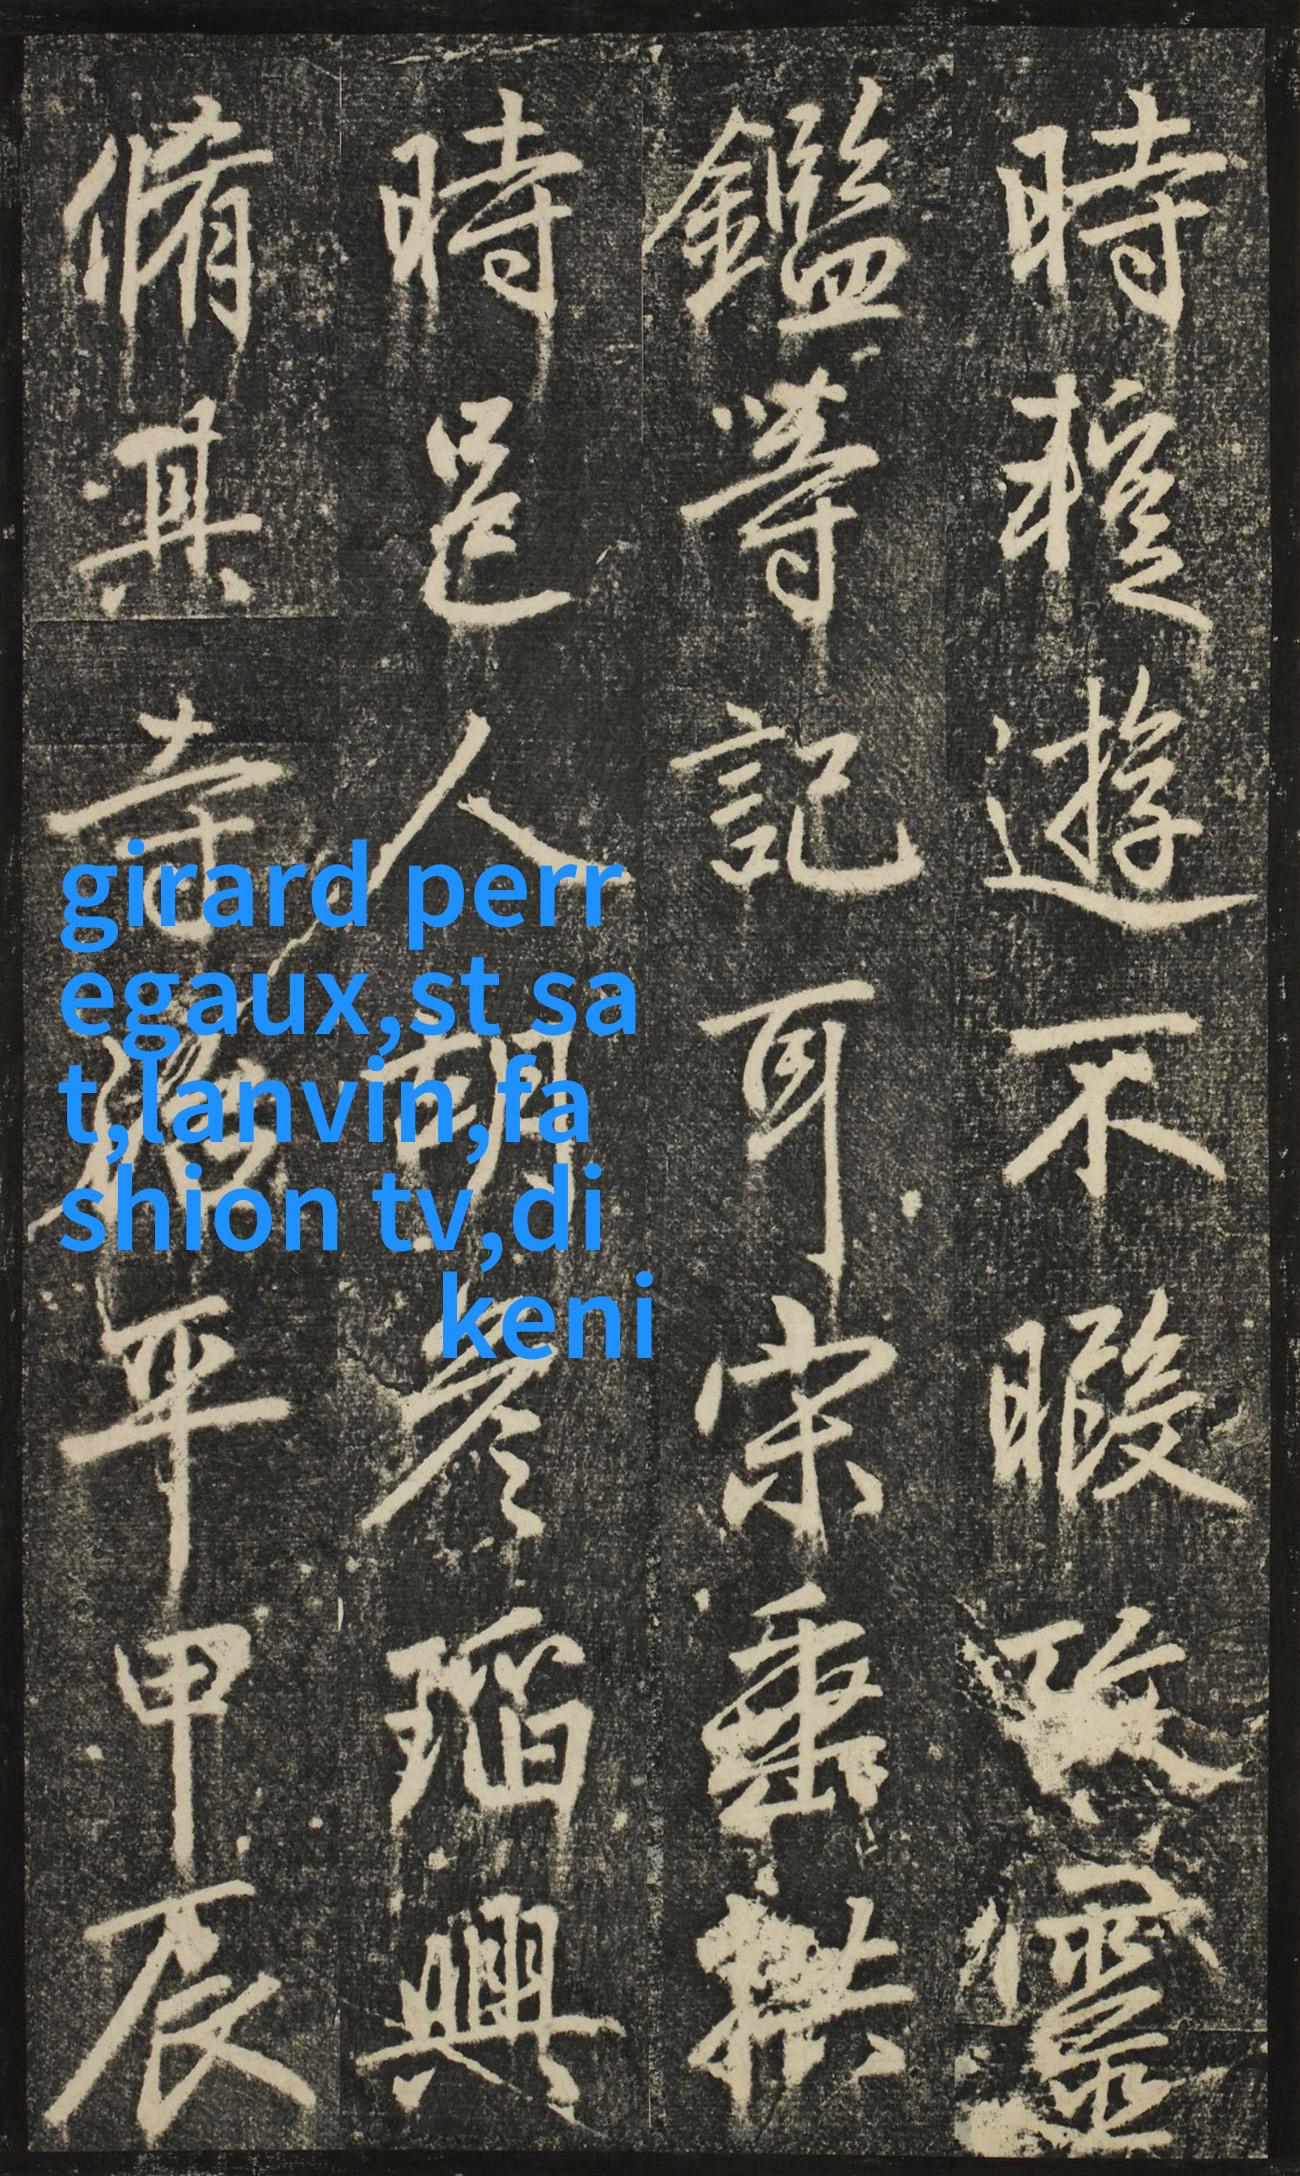 時遊不暇
鑑等記耳宋垂拱
時邑人胡彥瑫興
脩其寺治平甲辰
girard perr
egaux,st sa
t,lanvin,fa
shion tv,di
keni